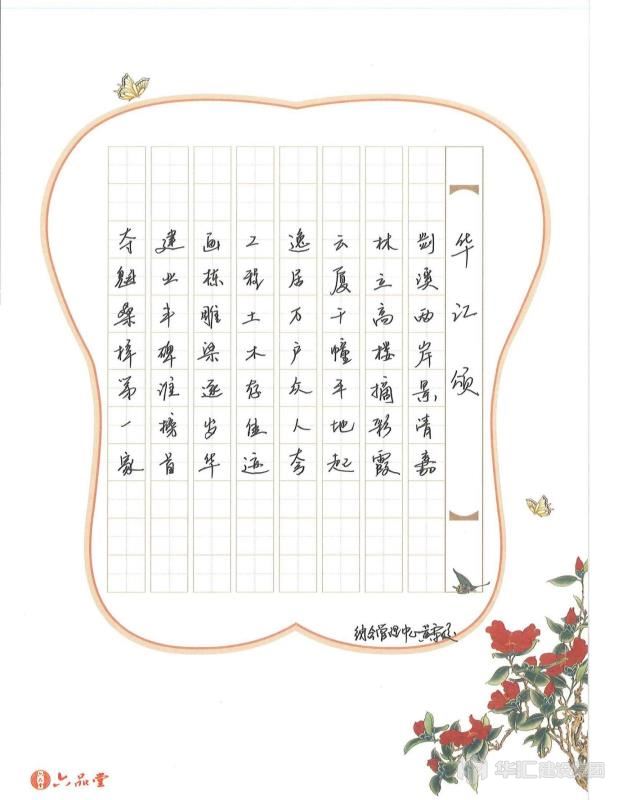 华江颂
剡溪两岸景清嘉
林立高楼摘彩霞
云厦千幢平地起
逸居万户众人夸
工程土木存佳迹
画栋雕梁逐岁华
建业丰碑谁榜首
夺魁桑梓第一家
管理中心
六品堂
华汇建设集团